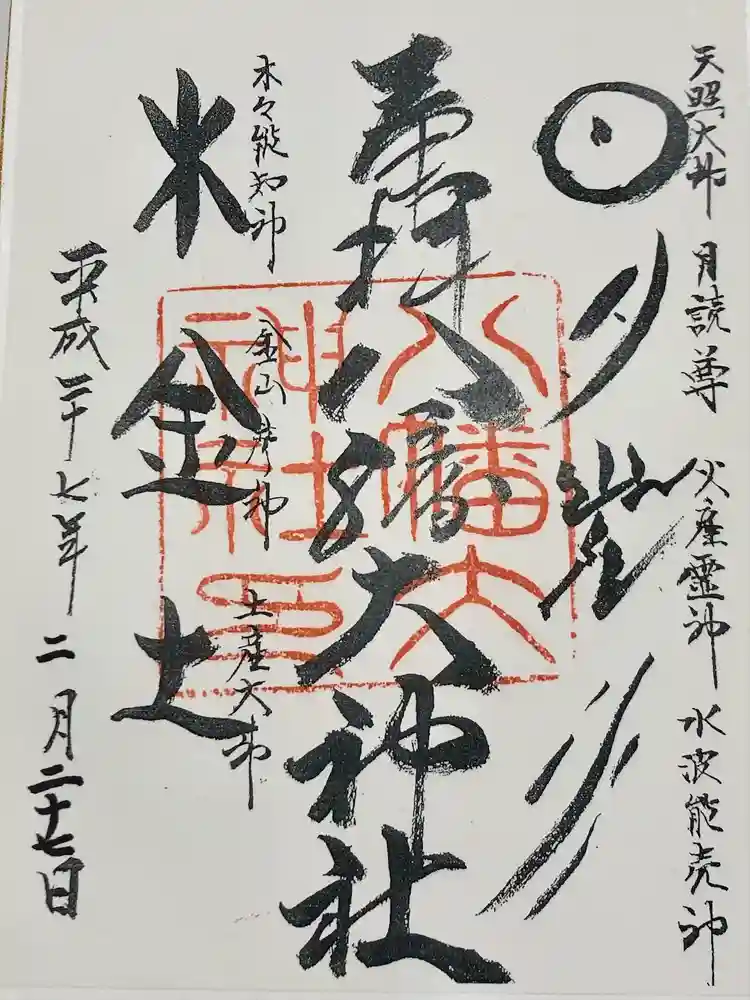 天照大神 月読尊 火産霊神 水波能売神
日 月 火 水
奉拝 八幡大神社
八幡大神社印
木々能知神 金山彦神 土産大神
木 金 土
平成二十七年 二月二十七日